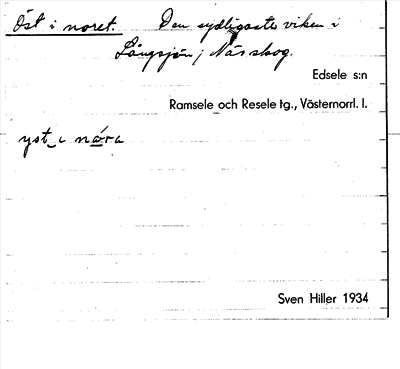 Öst i noret. Den sydligaste viken i
Långsjön; Näs skog.
Edsele s:n
Ramsele och Resele tg., Västernorrl. l.
yst i nóra
Sven Hiller 1934